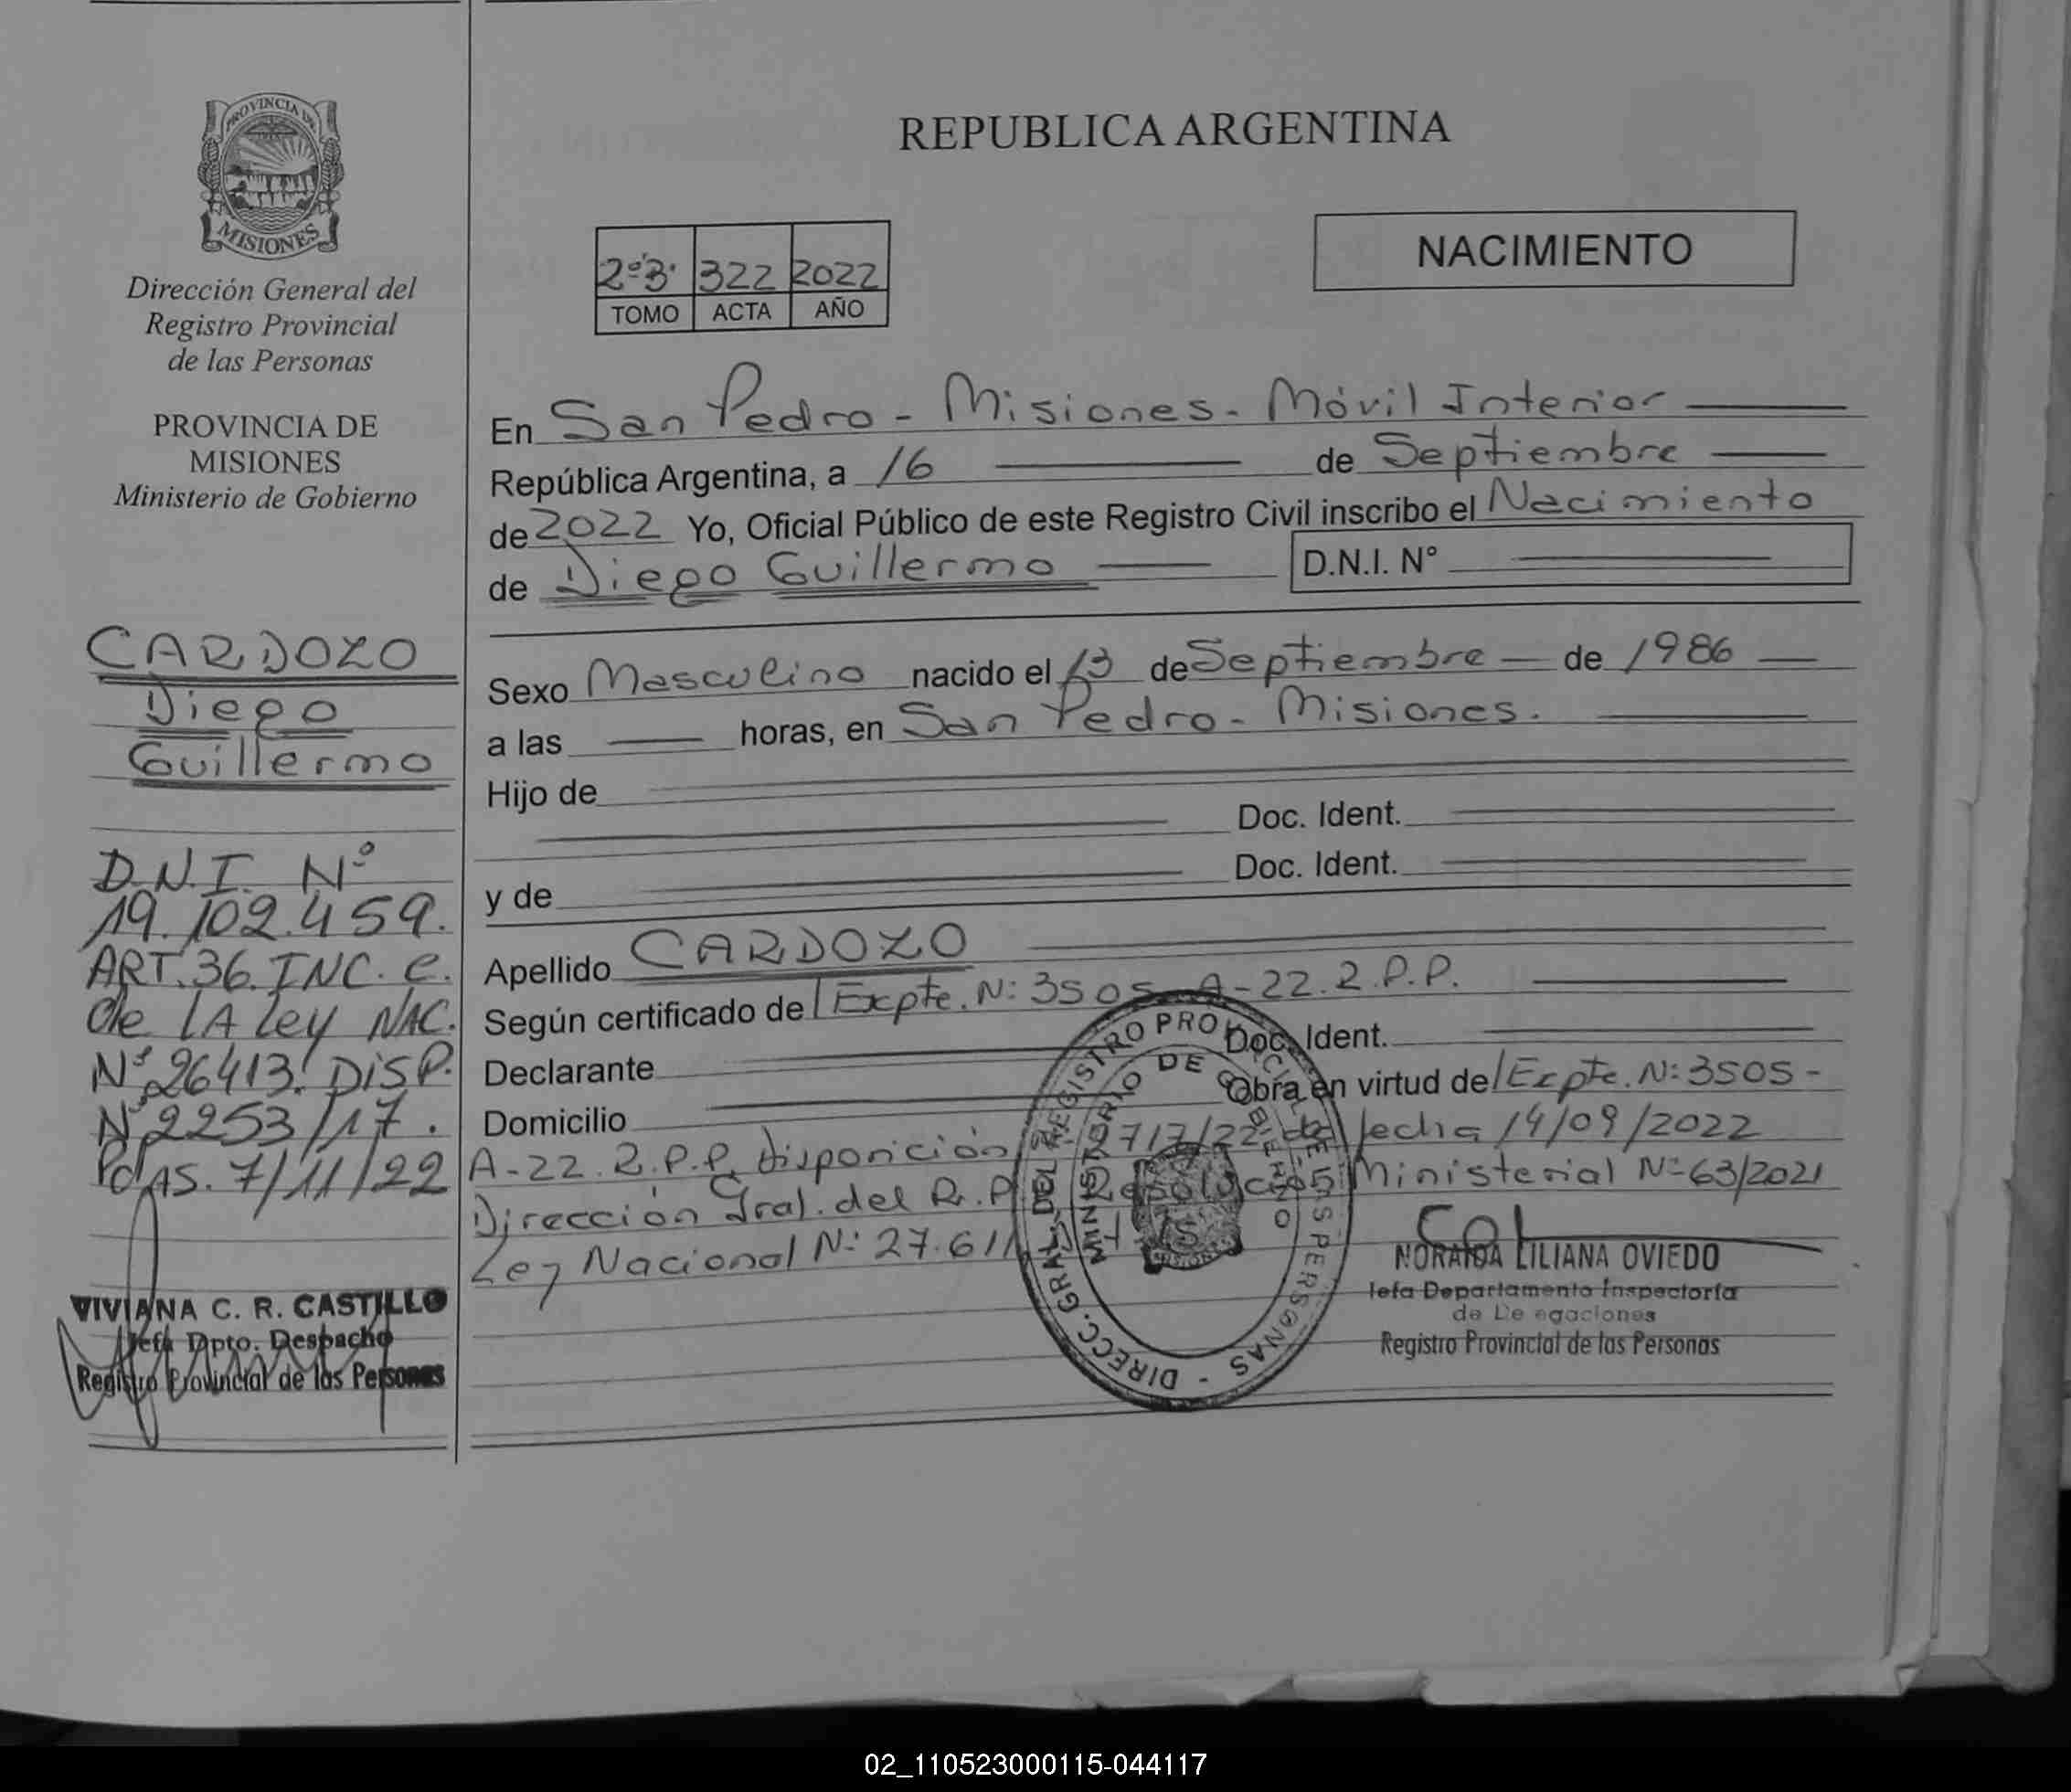 PROVINCIA DE
MISIONES
Dirección General del
Registro Provincial
de las Personas
PROVINCIA DE
MISIONES
Ministerio de Gobierno
CARDOZO
Diego
Guillermo
D.N.I. Nº
19.102.459.
ART.36.INC. e.
de LA Ley NAC.
Nº 26413. DISP.
Nº 2253/17.
Pdas. 7/11/22
VIVIANA C. R. CASTILLO
Jefa Dpto. Despacho
Registro Provincial de las Personas
REPUBLICA ARGENTINA
2º3. 322 2022
TOMO ACTA AÑO
NACIMIENTO
En San Pedro - Misiones - Móvil Interior
República Argentina, a 16 de Septiembre
de 2022 Yo, Oficial Público de este Registro Civil inscribo el Nacimiento
de Diego Guillermo D.N.I. N°
Sexo Masculino nacido el 13 de Septiembre de 1986
a las horas, en San Pedro - Misiones.
Hijo de
Doc. Ident.
y de Doc. Ident.
Apellido CARDOZO
Según certificado de Expte. Nº 3505 A-22.R.P.P.
Declarante Doc. Ident.
Domicilio Obra en virtud de Expte. Nº 3505-
A-22.R.P.P. Disposición de fecha 14/09/2022
Dirección Gral. del R.P. Resolución Ministerial Nº 63/2021
Ley Nacional Nº 27.611
DIRECC. GRAL. DEL REGISTRO PROVINCIAL DE LAS PERSONAS -
MINISTERIO DE GOBIERNO
NORAIDA LILIANA OVIEDO
Jefa Departamento Inspectoría
de Delegaciones
Registro Provincial de las Personas
02_110523000115-044117